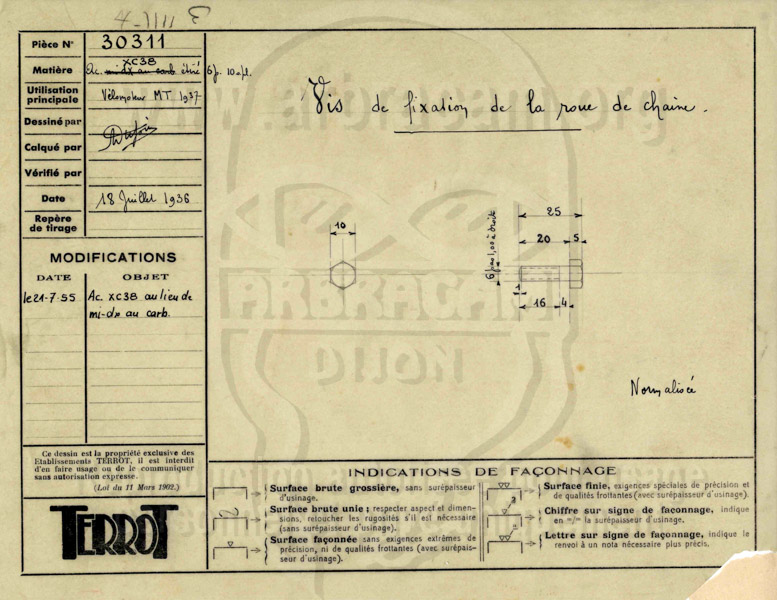 4-1111 E
Pièce N° 30311
Matière Ac. XC38 mi-dx au carb étiré 6 p. 10 pl.
Utilisation principale Vélomoteur MT 1937
Dessiné par
Calqué par
Vérifié par
Date 18 Juillet 1936
Repère de tirage
Vis de fixation de la roue de chaîne.
MODIFICATIONS
DATE OBJET
le 21-7-55 Ac. XC38 au lieu de
mi-dx au carb.
10
25
20 5
6 pas 1,00 à droite
1
16 4
Normalisée
www.arbracam.org
ARBRACAM
DIJON
Ce dessin est la propriété exclusive des
Etablissements TERROT, il est interdit
d'en faire usage ou de le communiquer
sans autorisation expresse.
(Loi du 11 Mars 1902.)
TERROT
INDICATIONS DE FAÇONNAGE
Surface brute grossière, sans surépaisseur
d'usinage.
Surface brute unie; respecter aspect et dimen-
sions, retoucher les rugosités s'il est nécessaire
(sans surépaisseur d'usinage).
Surface façonnée sans exigences extrêmes de
précision, ni de qualités frottantes (avec surépais-
seur d'usinage).
Surface finie, exigences spéciales de précision et
de qualités frottantes (avec surépaisseur d'usinage).
Chiffre sur signe de façonnage, indique
en m/m la surépaisseur d'usinage.
Lettre sur signe de façonnage, indique le
renvoi à un nota nécessaire plus précis.